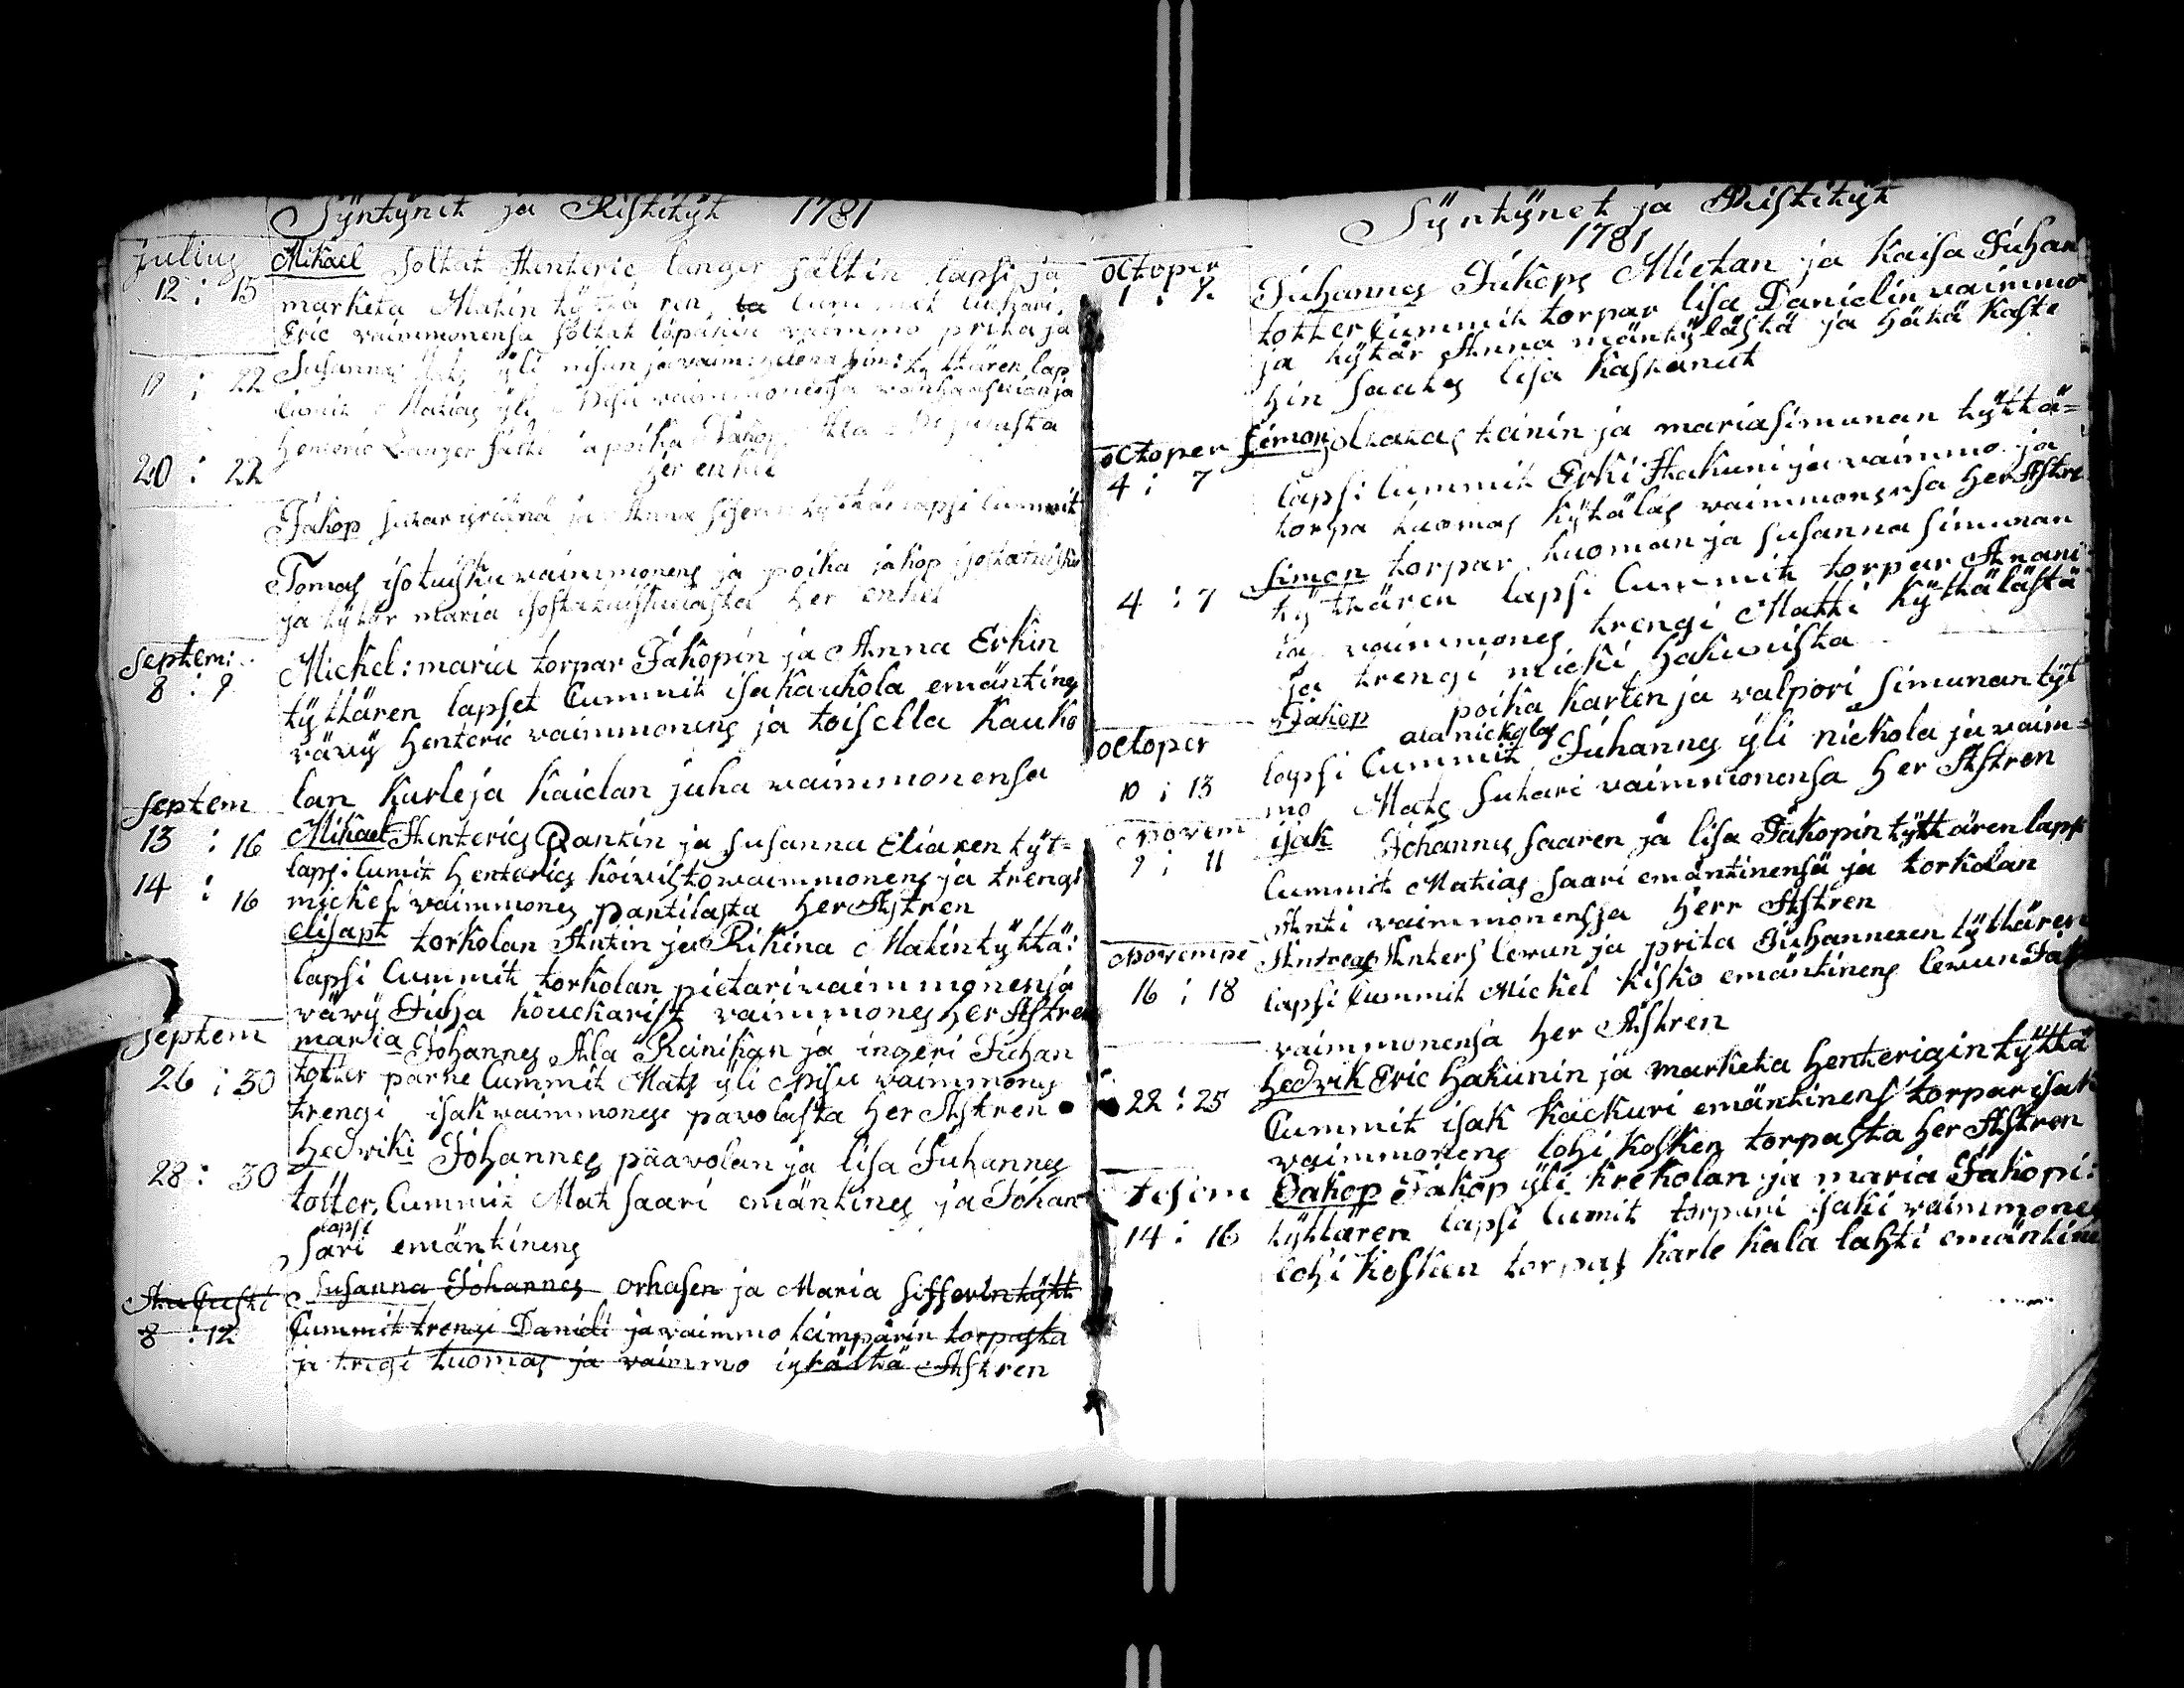 Syntynet ja Ristityt 1781
Julius
12 : 15
Mikael Soltat Henteric langer Sältin lapsi ja
marketa Matin tyttä ren, ta Cum mit
Eric vaimmonensa soltat vaimmo prita ja
12 : 22
Susanna yli nisun ja tyttären lap
Cumit Matias yli Nisu vaimmonensa
Henteric Langer ja poika Jakop
20 : 22
her enkel
Jakop ja Anna tyttär lapsi Cummit
Tomas isotuisku vaimmonens ja poika jakop
ja tytär maria her enkel
Septem:
8 : 9
Mickel: maria torpar Jakopin ja Anna Erkin
tyttären lapset Cummit isa kaukola emäntines
vävy Henteric vaimmonens ja toisella kauko
lan Karle ja Kaidan juha vaimmonensa
Septem
13 : 16
Mikael Henterics Pantin ja Susanna Eliaxen tyt=
lapsi Cumit Henterics koivisto vaimmonens ja trengi
14 : 16
mickel vaimmones pantilasta Her Astren
elisapt torkolan Antin ja Rikina Matin tyttä:
lapsi Cummit torkolan pietari vaimmonensa
vävy Juha kouckarist vaimmones Her Astren
Septem
26 : 30
maria Johannes Ala Reinikan ja ingeri Juhan
totter parne Cummit Mats yli Nisu vaimmons
trengi isak vaimmonens pavolasta Her Astren
28 : 30
Hedviki Johannes päavolan ja lisa Juhannes
totter, Cummit Mat Saari emäntines ja Johan
lapsi
Sari emäntinens
Aucusti
8 : 12
Susanna Johannes orhasen ja Maria Sifferin tytt
Cummit trengi Danieli ja vaimmo torpasta
ja trigi tuomas ja vaimmo Astren
Syntynet ja Ristityt
1781
octoper
1 : 7
Juhannes Jakops Mietan ja Kaisa Juhan
totter Cummit torpar lisa Danielin vaimmo
ja tytär Anna mäntylästä ja hätä Kaste
hin saates lisa kastanut
octoper
4 : 7
Simon Matas tanin ja maria Simunan tyttä=
lapsi Cummit Erki Hakuni ja vaimmo ja
torpa tuomas kytäläs vaimmonensa Her Astre
4 : 7
Simon torpar tuoman ja Susanna Simunan
tyttären lapsi Cummit torpar Anani
ja vaimmones trengi Matti kyttälästä
ja trengi micki Hakunista
octoper
10 : 13
Jakop poika karlen ja valpori Simunan tyt
ala nickolas
lapsi Cummit Juhannes yli nickola ja vaim=
mo Mats Suhari vaimmonensa Her Astren
Novem
9 : 11
isak Johannes Saaren ja lisa Jakopin tyttären lapsi
Cummit Matias Saari emäntinensä ja torkolan
Anti vaimmonensa Herr Astren
Novempe
16 : 18
Antreas Anters levun ja prita Juhannexen tyttären
lapsi Cummit Mickel Kisko emäntinens levun Jak
vaimmonensa Her Astren
22 : 25
Hedvik Eric Hakunin ja marketa Henterigin tyttä
Cummit isak kackuri emäntinens torpar isak
vaimmonens lohi kosken torpasta Her Astren
tesem
14 : 16
Jakop Jakop yli krekolan ja maria Jakopi:
tyttären lapsi Cumit torpari isaki vaimmones
lohi kosken torpas karle kala lahti emäntine